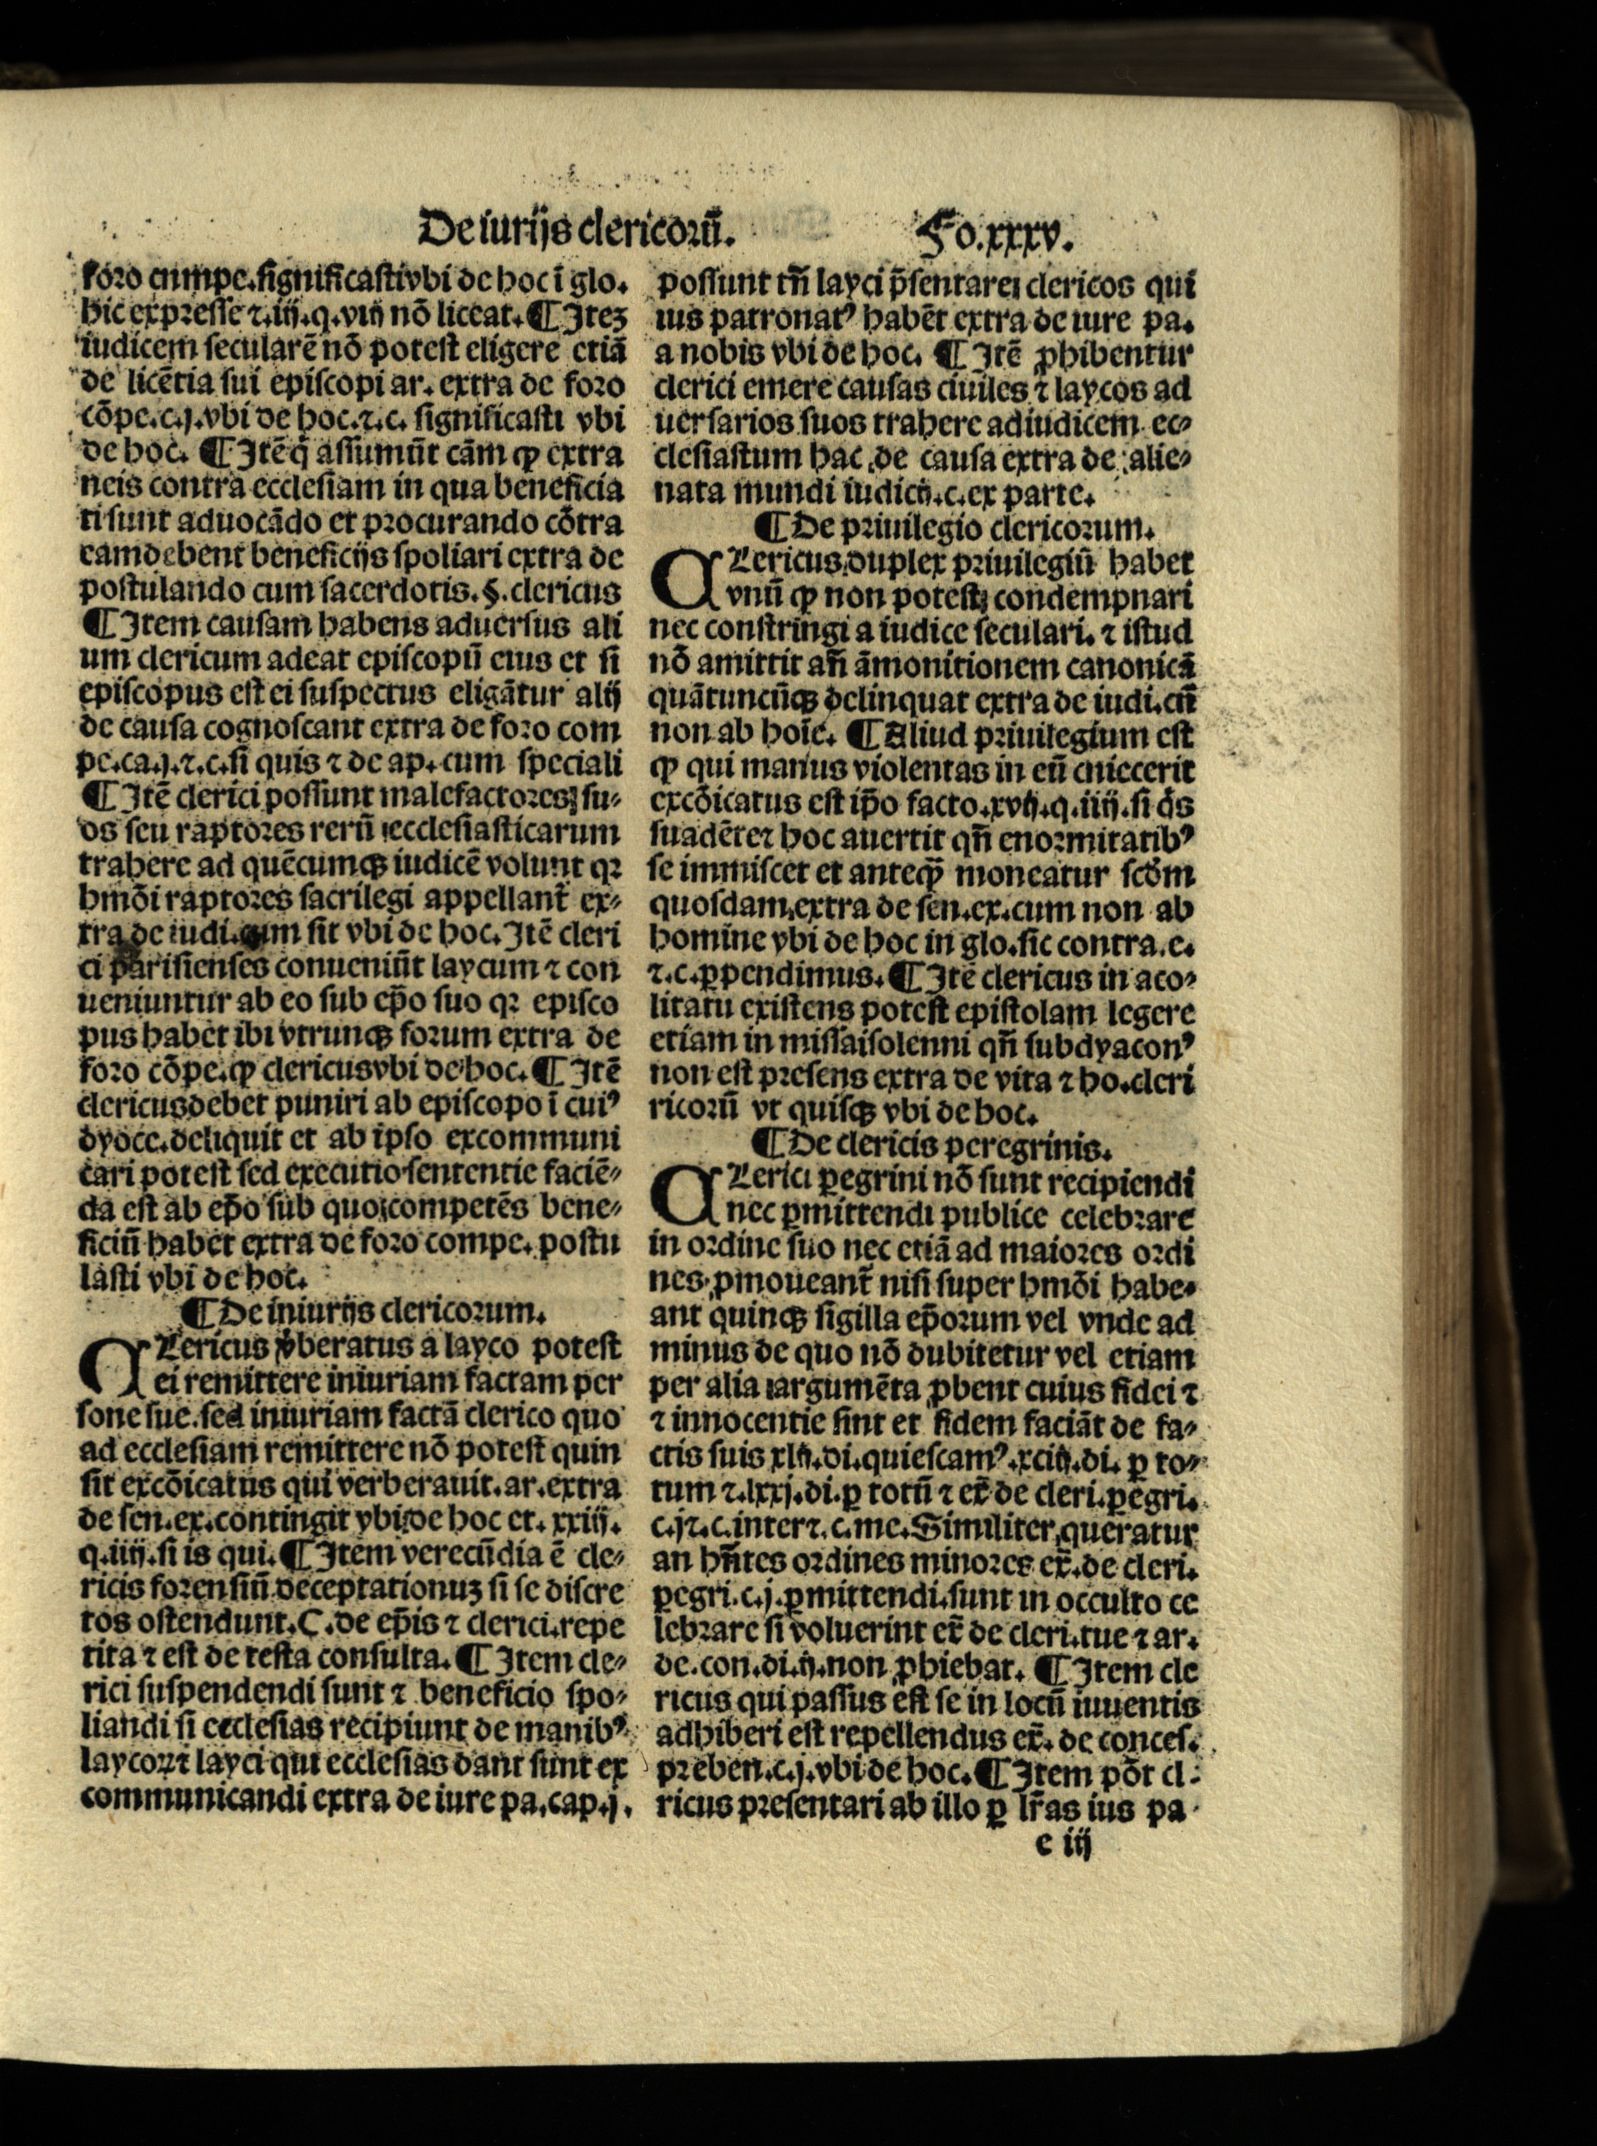 De iurijs clericorū.
Fo.xxxv.
foro cmpe.significasti vbi de hoc ī glo.
hic expresse ⁊.iij.q.viij nō liceat.¶Itez
iudicem secularē nō potest eligere etiā
de licētia sui episcopi ar.extra de foro
cōpe.c.j.vbi de hoc.⁊.c.significasti vbi
de hoc.¶Itē q̄ assumūt cām ꝙ extra
neis contra ecclesiam in qua beneficia
ti sunt aduocādo et procurando cōtra
eam debent beneficijs spoliari extra de
postulando cum sacerdotis.§.clericus
¶Item causam habens aduersus ali
um clericum adeat episcopū eius et si
episcopus est ei suspectus eligātur alij
de causa cognoscant extra de foro com
pe.ca.j.⁊.c.si quis ⁊ de ap.cum speciali
¶Itē clerici possunt malefactores su-
os seu raptores rerū ecclesiasticarum
trahere ad quēcumqꝫ iudicē volunt qꝛ
hmōi raptores sacrilegi appellant̄ ex-
tra de iudi.cum sit vbi de hoc.Itē cleri
ci parisienses conueniūt laycum ⁊ con
ueniuntur ab eo sub ep̄o suo qꝛ episco
pus habet ibi vtrunqꝫ forum extra de
foro cōpe.ꝙ clericus vbi de hoc.¶Itē
clericus debet puniri ab episcopo ī cuiꝰ
dyoce.deliquit et ab ipso excommuni
cari potest sed executio sententie faciē-
da est ab ep̄o sub quo competēs bene-
ficiū habet extra de foro compe.postu
lasti vbi de hoc.
¶De iniurijs clericorum.
CLericus v̓beratus a layco potest
ei remittere iniuriam factam per
sone sue.sed iniuriam factā clerico quo
ad ecclesiam remittere nō potest quin
sit excōicatus qui verberauit.ar.extra
de sen.ex.contingit vbi de hoc et.xxiij.
q.iiij.si is qui.¶Item verecūdia ē cle-
ricis forensiū deceptationuz si se discre
tos ostendunt.C.de ep̄is ⁊ clerici.repe
tita ⁊ est de testa consulta.¶Item cle-
rici suspendendi sunt ⁊ beneficio spo-
liandi si ecclesias recipiunt de manibꝰ
laycoꝝ ⁊ layci qui ecclesias dant sunt ex
communicandi extra de iure pa.cap.j.
possunt tn̄ layci p̄sentare clericos qui
ius patronatꝰ habēt extra de iure pa.
a nobis vbi de hoc.¶Itē ꝓhibentur
clerici emere causas ciuiles ⁊ laycos ad
uersarios suos trahere ad iudicem ec-
clesiastum hac de causa extra de alie-
nata mundi iudicij.c.ex parte.
¶De priuilegio clericorum.
CLericus duplex priuilegiū habet
vnū ꝙ non potest condempnari
nec constringi a iudice seculari.⁊ istud
nō amittit an̄ āmonitionem canonicā
quātuncūqꝫ delinquat extra de iudi.cū
non ab hoīe.¶Aliud priuilegium est
ꝙ qui manus violentas in eū eniecerit
excōicatus est ip̄o facto.xvij.q.iiij.si q̇s
suadēte ⁊ hoc auertit qn̄ enormitatibꝰ
se immiscet et anteꝙ̄ moneatur scd̄m
quosdam extra de sen.ex.cum non ab
homine vbi de hoc in glo.sic contra.e.
⁊.c.ꝑpendimus.¶Itē clericus in aco-
litatu existens potest epistolam legere
etiam in missa solenni qn̄ subdyaconꝰ
non est presens extra de vita ⁊ ho.cleri
ricorū vt quisqꝫ vbi de hoc.
¶De clericis peregrinis.
CLerici ꝑegrini nō sunt recipiendi
nec ꝑmittendi publice celebrare
in ordine suo nec etiā ad maiores ordi
nes ꝓmoueant̄ nisi super hmōi habe-
ant quinqꝫ sigilla ep̄orum vel vnde ad
minus de quo nō dubitetur vel etiam
per alia argumēta ꝓbent cuius fidei ⁊
⁊ innocentie sint et fidem faciāt de fa-
ctis suis xlij.di.quiescamꝰ.xciij.di.ꝑ to-
tum ⁊.lxxj.di.ꝑ totū ⁊ ex̄ de cleri.ꝑegri.
c.j⁊.c.inter⁊.c.me.Similiter queratur
an hn̄tes ordines minores ex̄.de cleri.
ꝑegri.c.j.ꝑmittendi.sunt in occulto ce
lebrare si voluerint ex̄ de cleri.tue ⁊ ar.
de.con.di.ij.non ꝓhiebat.¶Item cle
ricus qui passus est se in locū iuuentis
adhiberi est repellendus ex̄.de conces.
preben.c.j.vbi de hoc.¶Item pōt cl
ricus presentari ab illo ꝑ lr̄as ius pa
e iij